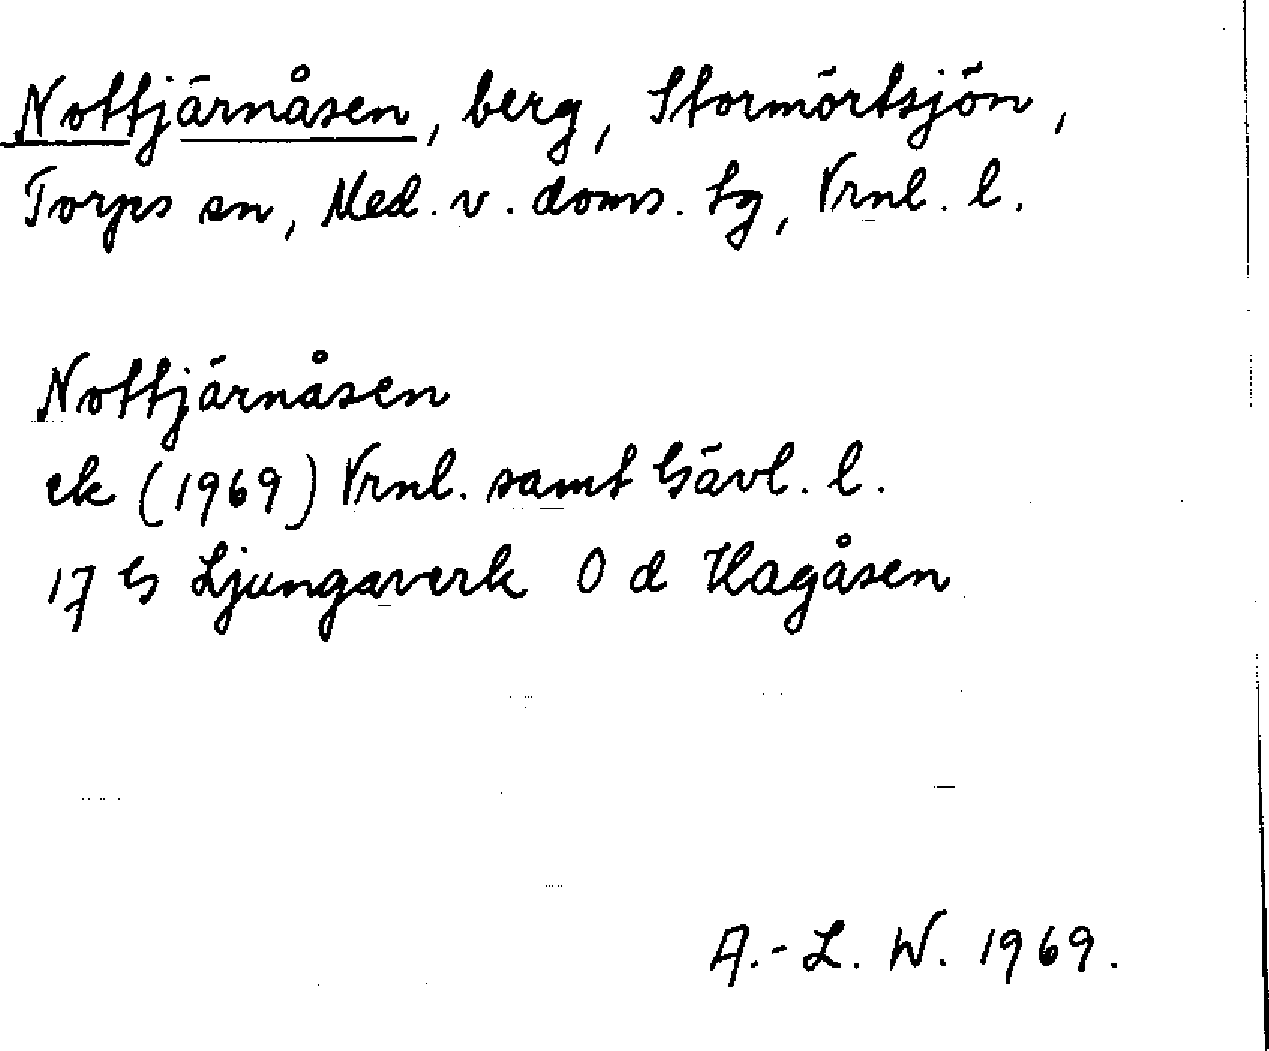 Nottjärnåsen, berg, Stormörtsjön,
Torps sn, Med. v. doms. tg, Vrnl. l.
Nottjärnåsen
ek (1969) Vrnl. samt Gävl. l.
17 G Ljungaverk 0 d Hagåsen
A.-L. W. 1969.